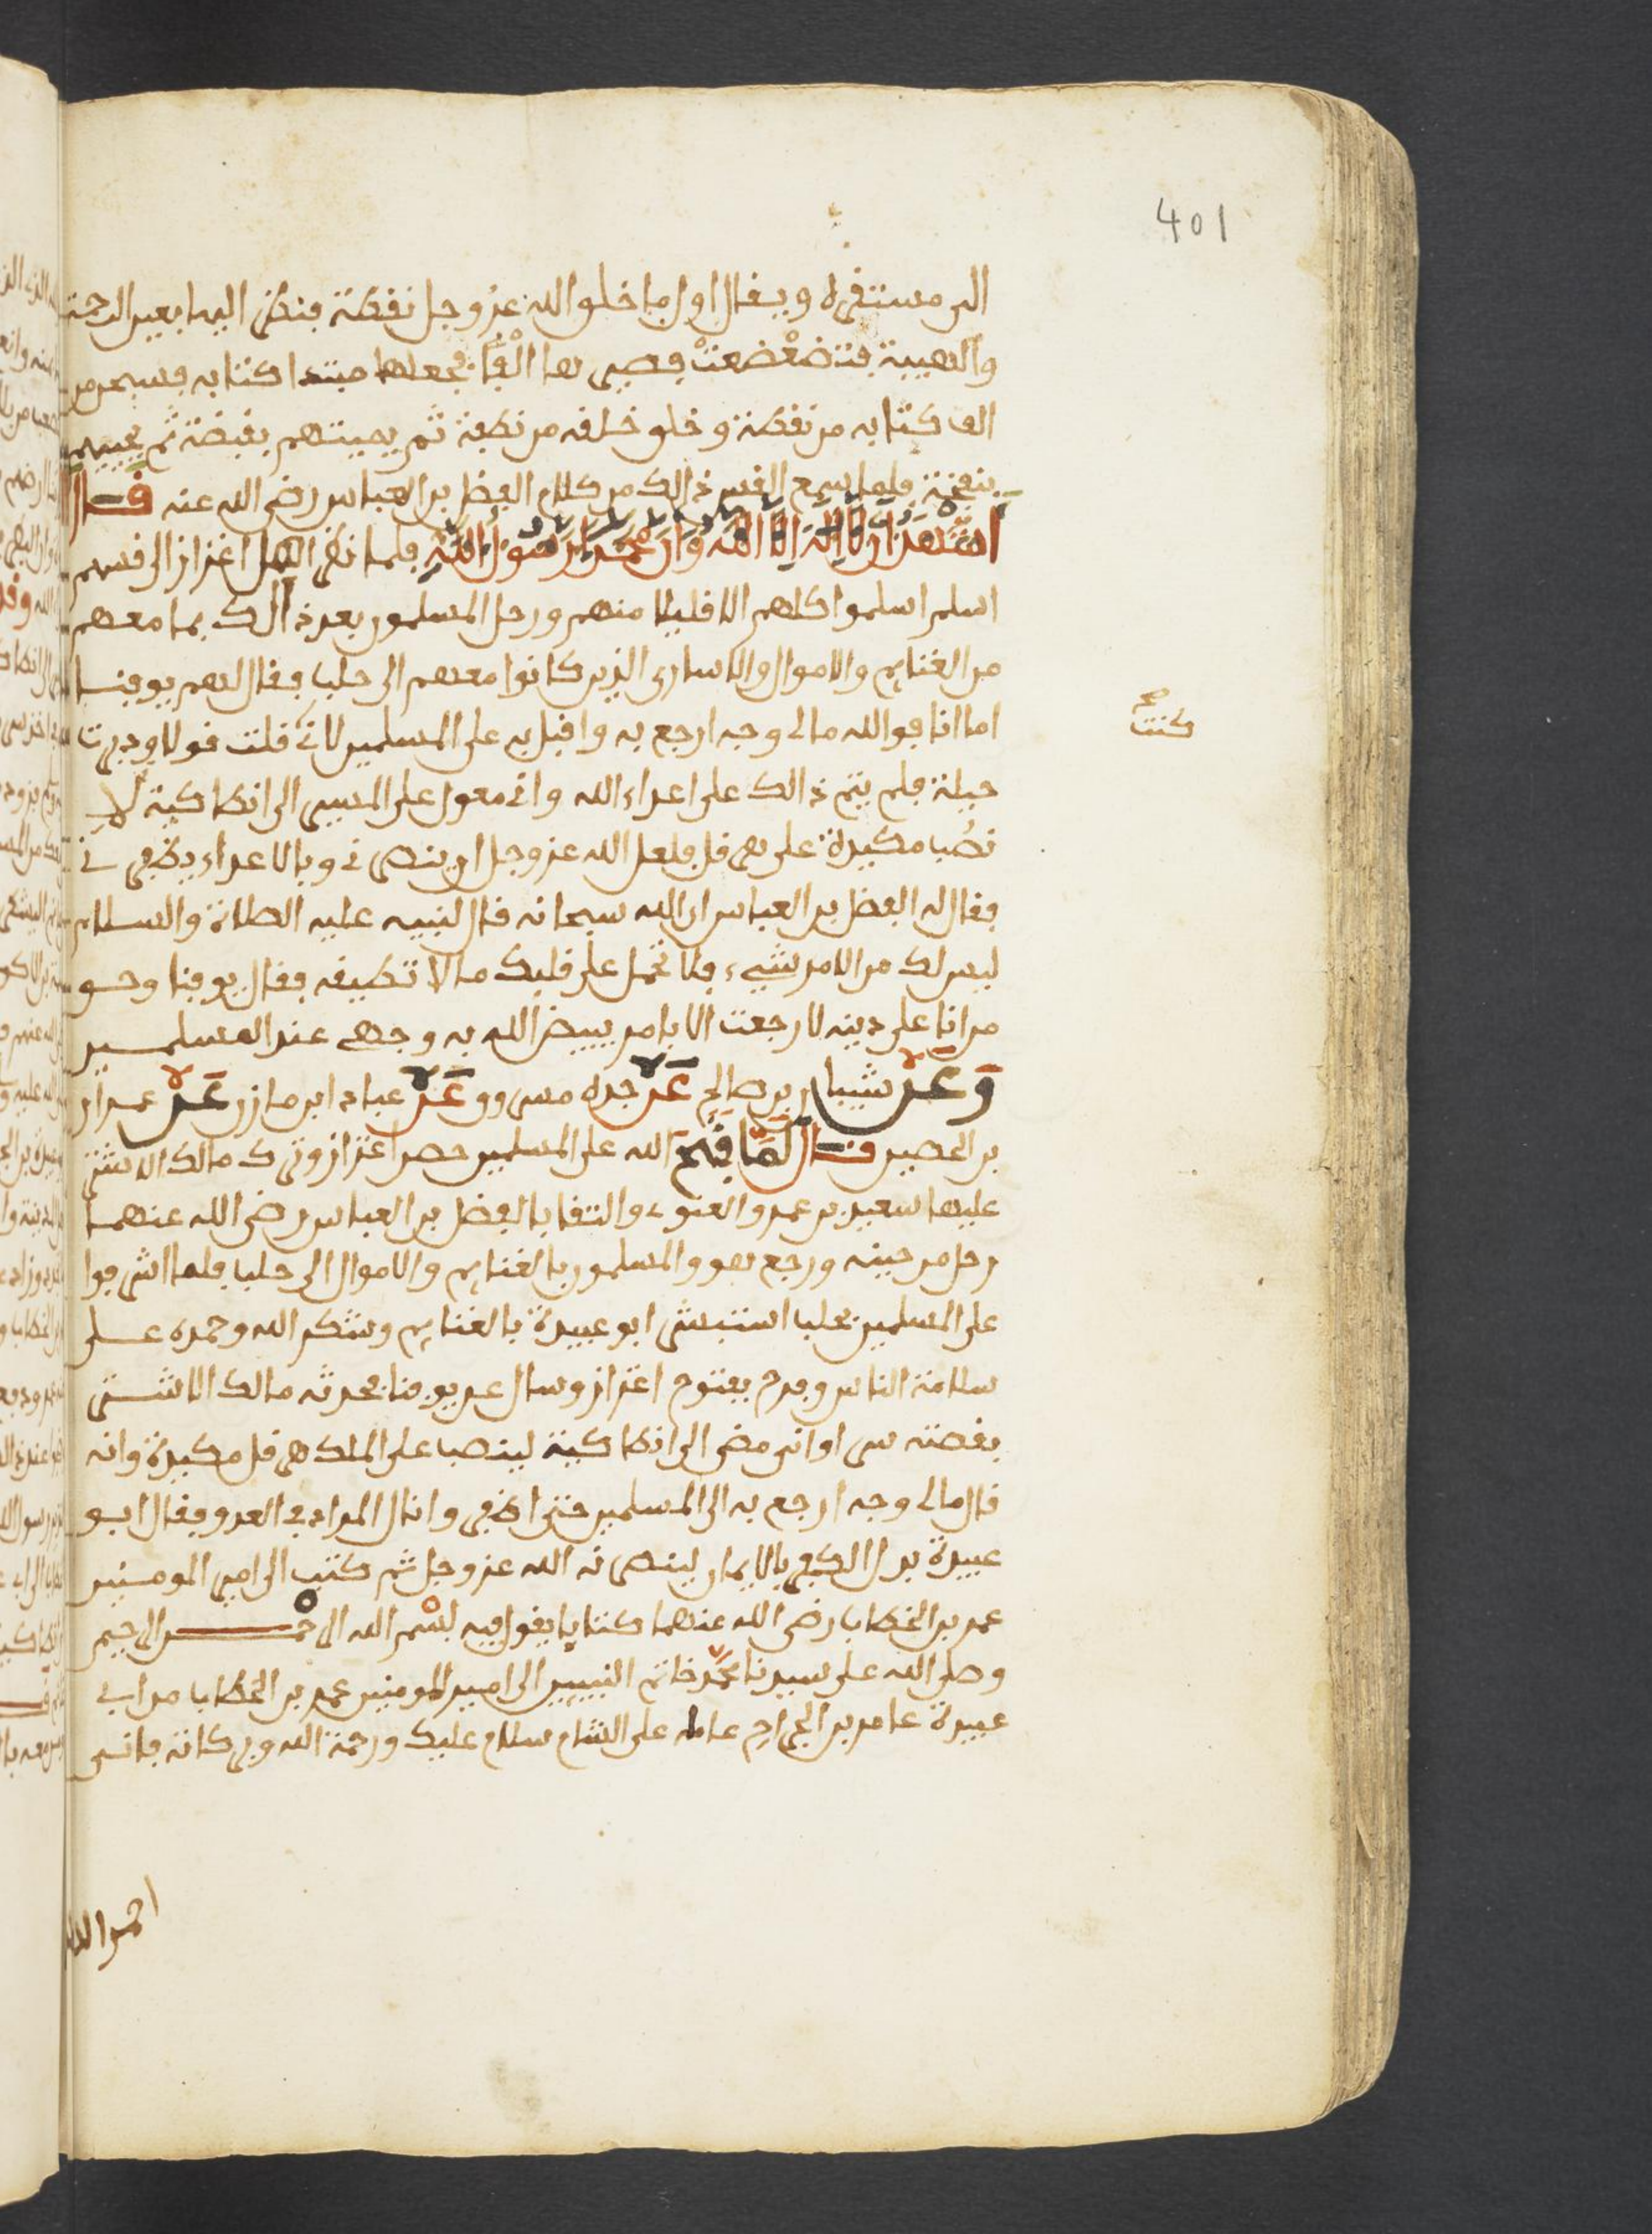 401
الى مستقره ويقال اول ما خلق الله عز وجل نقطة فنظر اليها بعين الرحمة
والهيبة فتضعضعت فصيرها الفا فجعلها مبتدا كتابه فسبحن من
الف كتابه من نقطة وخلق خلقه من نطفة ثم يميتهم بقبضة ثم يحييهم
بنفخة فلما سمع القس ذالك من كلام الفضل بن العباس رضى الله عنه قال
اشهد ان لا اله الا الله وان محمدا رسول الله فلما نظر اهل اعزاز الى قسهم
اسلم اسلموا كلهم الا قليلا منهم ورحل المسلمون بعد ذالك بما معهم
من الغنايم والاموال والاسارى الذين كانوا معهم الى حلب فقال لهم يوقنا
اما انا فوالله مالى وجه ارجع به واقبل به على المسلمين لانى قلت قولا ودبرت
كنت صح
حيلة فلم يتم ذالك على اعداء الله وانى معول على المسير الى انطاكية لا
نصب مكيدة على هرقل فلعل الله عز وجل ان ينصرنى وبالاعداء يظفرنى
فقال له الفضل بن العباس ان الله سبحانه قال لنبيه عليه الصلاة والسلام
ليس لك من الامر شيء فلا تحمل على قلبك ما لا تطيقه فقال يوقنا وحق
من انا على دينه لا رجعت الا بامر يبيض الله به وجهى عند المسلمين
وعن شيبان بن صالح عن جده مسروق عن عباد ابن مازن عن عمران
بن الحصين قال لما فتح الله على المسلمين حصن اعزاز وترك مالك الاشتر
عليها سعيد بن عمرو الغنوى والتقا بالفضل بن العباس رضى الله عنهما
رحل من حينه ورجع هو والمسلمون بالغنايم والاموال الى حلب فلما اشرفوا
على المسلمين بحلب استبشر ابو عبيدة بالغنايم وشكر الله وحمده على
سلامة الناس وفرح بفتوح اعزاز وسال عن يوقنا فحدثه مالك الاشتر
بقصته سرا وانه مضى الى انطاكية لينصب على الملك هرقل مكيدة وانه
قال مالى وجه ارجع به الى المسلمين حتى اظفر وانال المراد فى العدو فقال ابو
عبيدة بدل الكفر بالايمان لينصرنه الله عز وجل ثم كتب الى امير المومنين
عمر بن الخطاب رضى الله عنهما كتابا يقول فيه بسم الله الرحمن الرحيم
وصلى الله على سيدنا محمد خاتم النبيين الى امير المومنين عمر بن الخطاب من ابى
عبيدة عامر بن الجراح عامله على الشام سلام عليك ورحمة الله وبركاته فانى
احمد الله